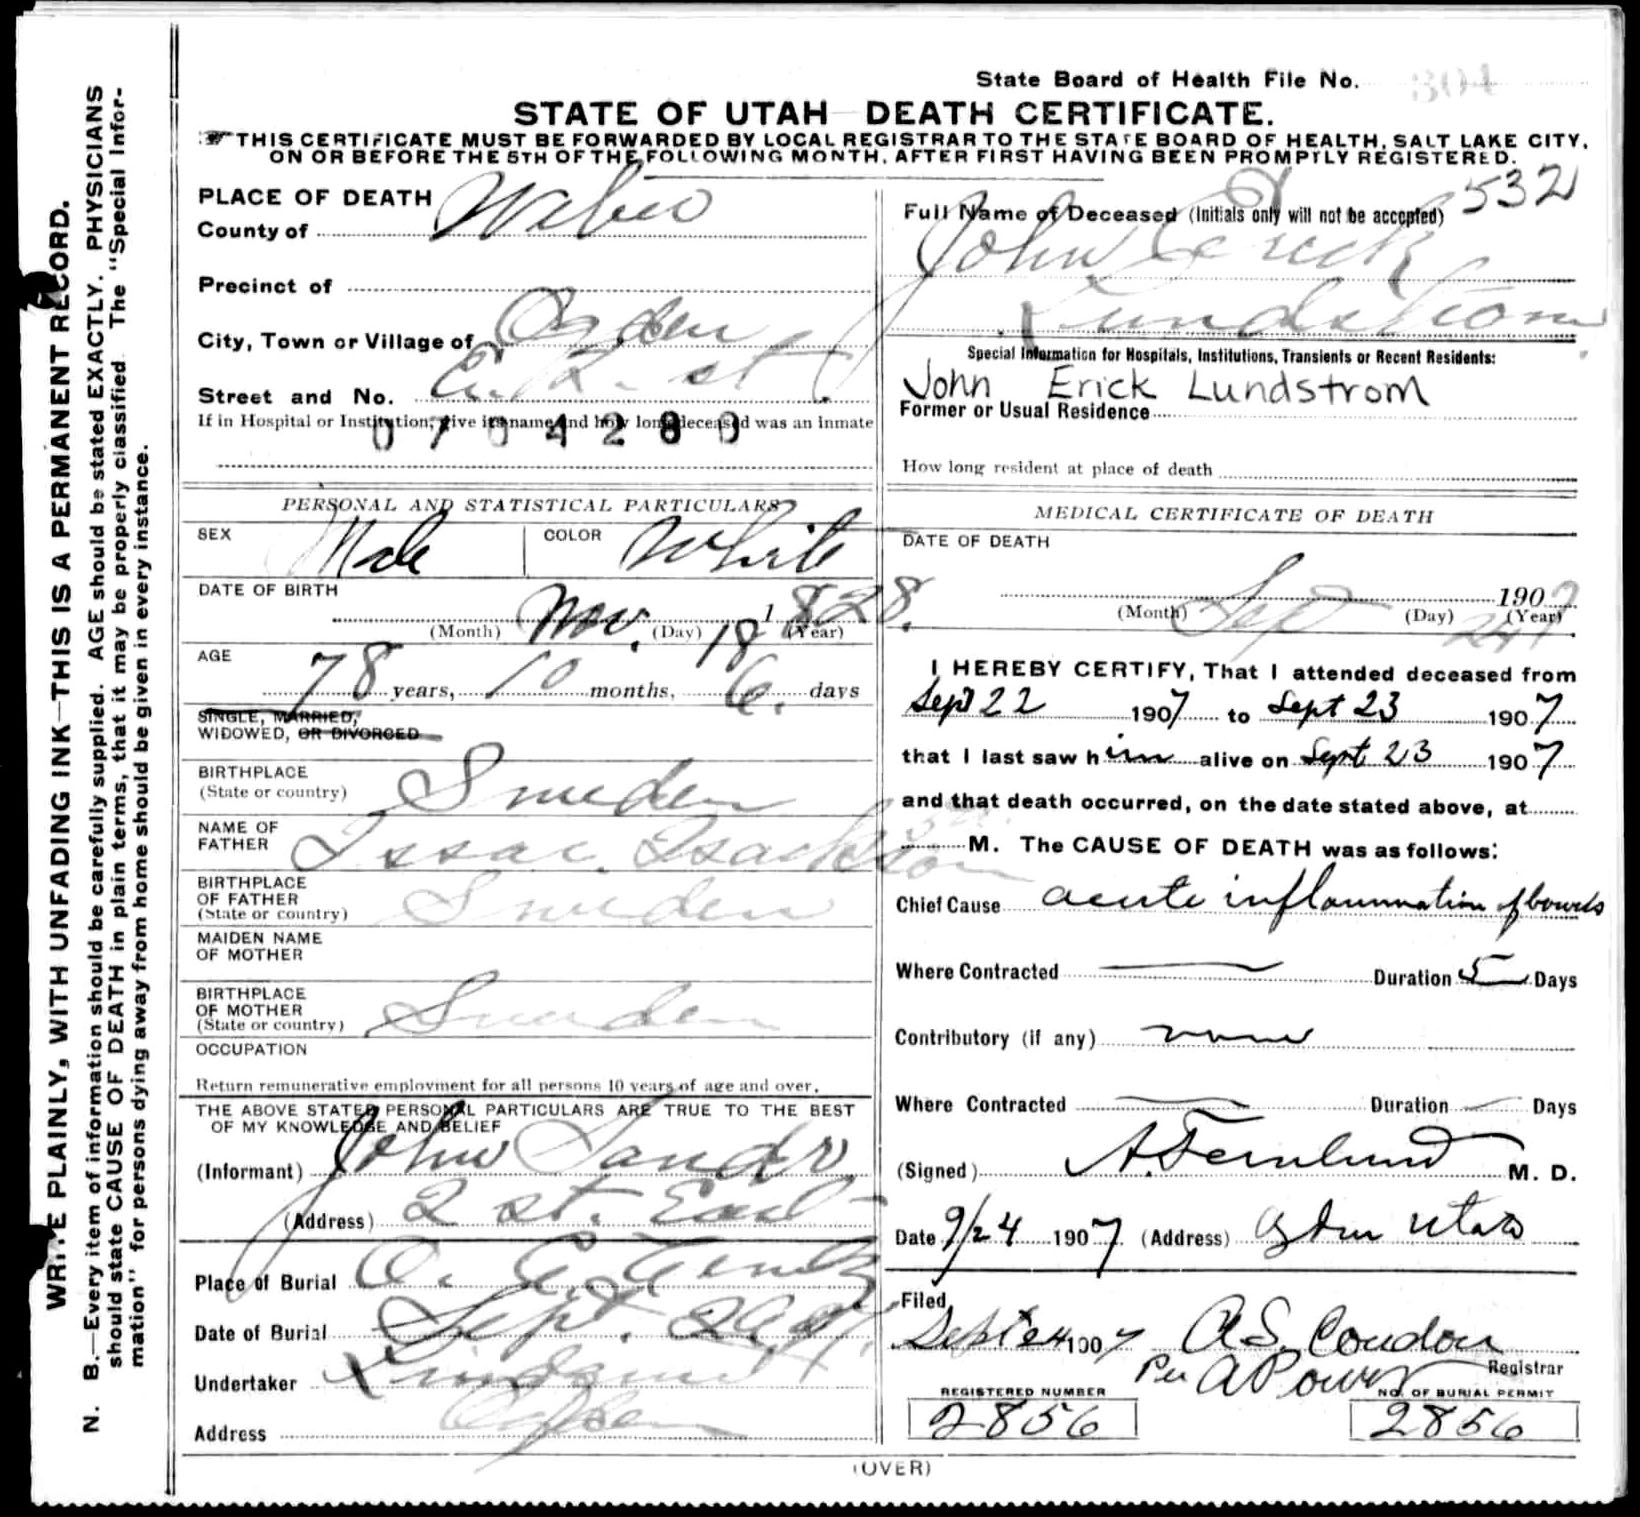 State Board of Health File No. 304
STATE OF UTAH DEATH CERTIFICATE.
THIS CERTIFICATE MUST BE FORWARDED BY LOCAL REGISTRAR TO THE STATE BOARD OF HEALTH, SALT LAKE CITY,
ON OR BEFORE THE 5TH OF THE FOLLOWING MONTH, AFTER FIRST HAVING BEEN PROMPTLY REGISTERED.
WRITE PLAINLY, WITH UNFADING INK—THIS IS A PERMANENT RECORD.
N. B.—Every item of information should be carefully supplied. AGE should be stated EXACTLY. PHYSICIANS
should state CAUSE OF DEATH in plain terms, that it may be properly classified. The "Special Infor-
mation" for persons dying away from home should be given in every instance.
PLACE OF DEATH
County of Weber
Precinct of
City, Town or Village of Ogden
Street and No. st.
If in Hospital or Institution, give its name and how long deceased was an inmate
0704280
PERSONAL AND STATISTICAL PARTICULARS
SEX Male COLOR White
DATE OF BIRTH
Nov. 18 1828.
(Month) (Day) (Year)
AGE
78 years, 10 months, 6. days
SINGLE, MARRIED,
WIDOWED, OR DIVORCED
BIRTHPLACE
(State or country) Sweden
NAME OF
FATHER Issac Isackson
BIRTHPLACE
OF FATHER
(State or country) Sweden
MAIDEN NAME
OF MOTHER
BIRTHPLACE
OF MOTHER
(State or country) Sweden
OCCUPATION
Return remunerative employment for all persons 10 years of age and over.
THE ABOVE STATED PERSONAL PARTICULARS ARE TRUE TO THE BEST
OF MY KNOWLEDGE AND BELIEF
(Informant) John
(Address) 2 st. East
Place of Burial
Date of Burial Sept.
Undertaker
Address Ogden
532
Full Name of Deceased (Initials only will not be accepted)
John Erick
Lundstrom
Special Information for Hospitals, Institutions, Transients or Recent Residents:
John Erick Lundstrom
Former or Usual Residence
How long resident at place of death
MEDICAL CERTIFICATE OF DEATH
DATE OF DEATH
Sep 24 1907
(Month) (Day) (Year)
I HEREBY CERTIFY, That I attended deceased from
Sept 22 1907 to Sept 23 1907
that I last saw him alive on Sept 23 1907
and that death occurred, on the date stated above, at
M. The CAUSE OF DEATH was as follows:
Chief Cause acute inflammation of bowels
Where Contracted — Duration 5 Days
Contributory (if any) none
Where Contracted — Duration — Days
(Signed) A. Fernlund M. D.
Date 9/24 1907. (Address) Ogden Utah
Filed
Sept 24 1907 A S. Condon
Per A Power Registrar
REGISTERED NUMBER NO. OF BURIAL PERMIT
2856 2856
(OVER)